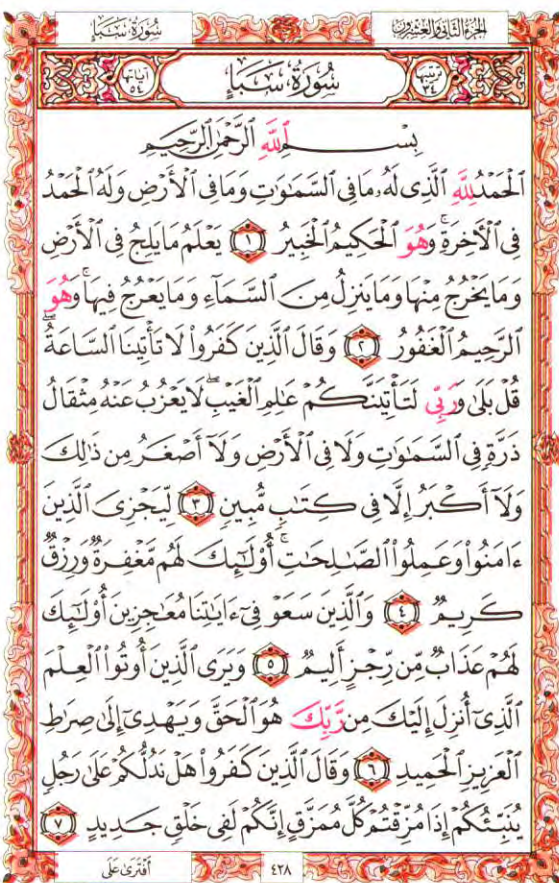 الجزء الثاني والعشرون
سورة سبإ
ترتيبها ٣٤
سُورَةُ سَبَإٍ
آياتها ٥٤
بِسْمِ ٱللَّهِ ٱلرَّحْمَٰنِ ٱلرَّحِيمِ
ٱلْحَمْدُ لِلَّهِ ٱلَّذِى لَهُۥ مَا فِى ٱلسَّمَٰوَٰتِ وَمَا فِى ٱلْأَرْضِ وَلَهُ ٱلْحَمْدُ
فِى ٱلْأَخِرَةِ ۚ وَهُوَ ٱلْحَكِيمُ ٱلْخَبِيرُ ١ يَعْلَمُ مَا يَلِجُ فِى ٱلْأَرْضِ
وَمَا يَخْرُجُ مِنْهَا وَمَا يَنزِلُ مِنَ ٱلسَّمَآءِ وَمَا يَعْرُجُ فِيهَا ۚ وَهُوَ
ٱلرَّحِيمُ ٱلْغَفُورُ ٢ وَقَالَ ٱلَّذِينَ كَفَرُوا۟ لَا تَأْتِينَا ٱلسَّاعَةُ ۖ
قُلْ بَلَىٰ وَرَبِّى لَتَأْتِيَنَّكُمْ عَٰلِمِ ٱلْغَيْبِ ۖ لَا يَعْزُبُ عَنْهُ مِثْقَالُ
ذَرَّةٍ فِى ٱلسَّمَٰوَٰتِ وَلَا فِى ٱلْأَرْضِ وَلَآ أَصْغَرُ مِن ذَٰلِكَ
وَلَآ أَكْبَرُ إِلَّا فِى كِتَٰبٍ مُّبِينٍ ٣ لِّيَجْزِىَ ٱلَّذِينَ
ءَامَنُوا۟ وَعَمِلُوا۟ ٱلصَّٰلِحَٰتِ ۚ أُو۟لَٰٓئِكَ لَهُم مَّغْفِرَةٌ وَرِزْقٌ
كَرِيمٌ ٤ وَٱلَّذِينَ سَعَوْ فِىٓ ءَايَٰتِنَا مُعَٰجِزِينَ أُو۟لَٰٓئِكَ
لَهُمْ عَذَابٌ مِّن رِّجْزٍ أَلِيمٌ ٥ وَيَرَى ٱلَّذِينَ أُوتُوا۟ ٱلْعِلْمَ
ٱلَّذِىٓ أُنزِلَ إِلَيْكَ مِن رَّبِّكَ هُوَ ٱلْحَقَّ وَيَهْدِىٓ إِلَىٰ صِرَٰطِ
ٱلْعَزِيزِ ٱلْحَمِيدِ ٦ وَقَالَ ٱلَّذِينَ كَفَرُوا۟ هَلْ نَدُلُّكُمْ عَلَىٰ رَجُلٍ
يُنَبِّئُكُمْ إِذَا مُزِّقْتُمْ كُلَّ مُمَزَّقٍ إِنَّكُمْ لَفِى خَلْقٍ جَدِيدٍ ٧
٤٢٨
أَفْتَرَىٰ عَلَى